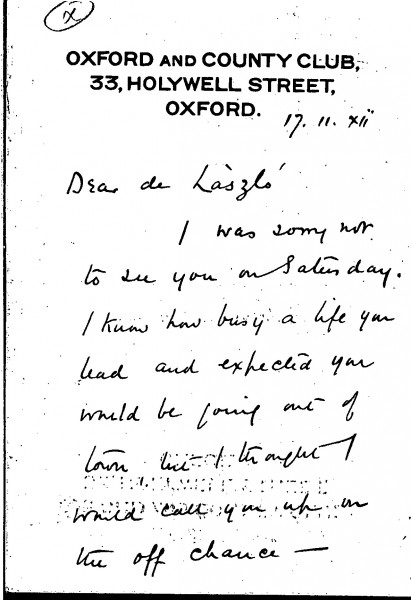 x
OXFORD AND COUNTY CLUB,
33, HOLYWELL STREET,
OXFORD.
17. 11. xii
Dear de László
I was sorry not
to see you on Saturday.
I know how busy a life you
lead and expected you
would be going out of
town but I thought I
would call you up on
the off chance —